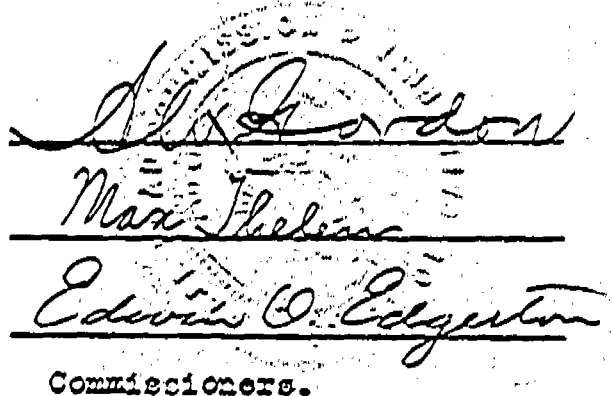 Alex Gordon
Max Thelen
Edwin O. Edgerton
Commissioners.